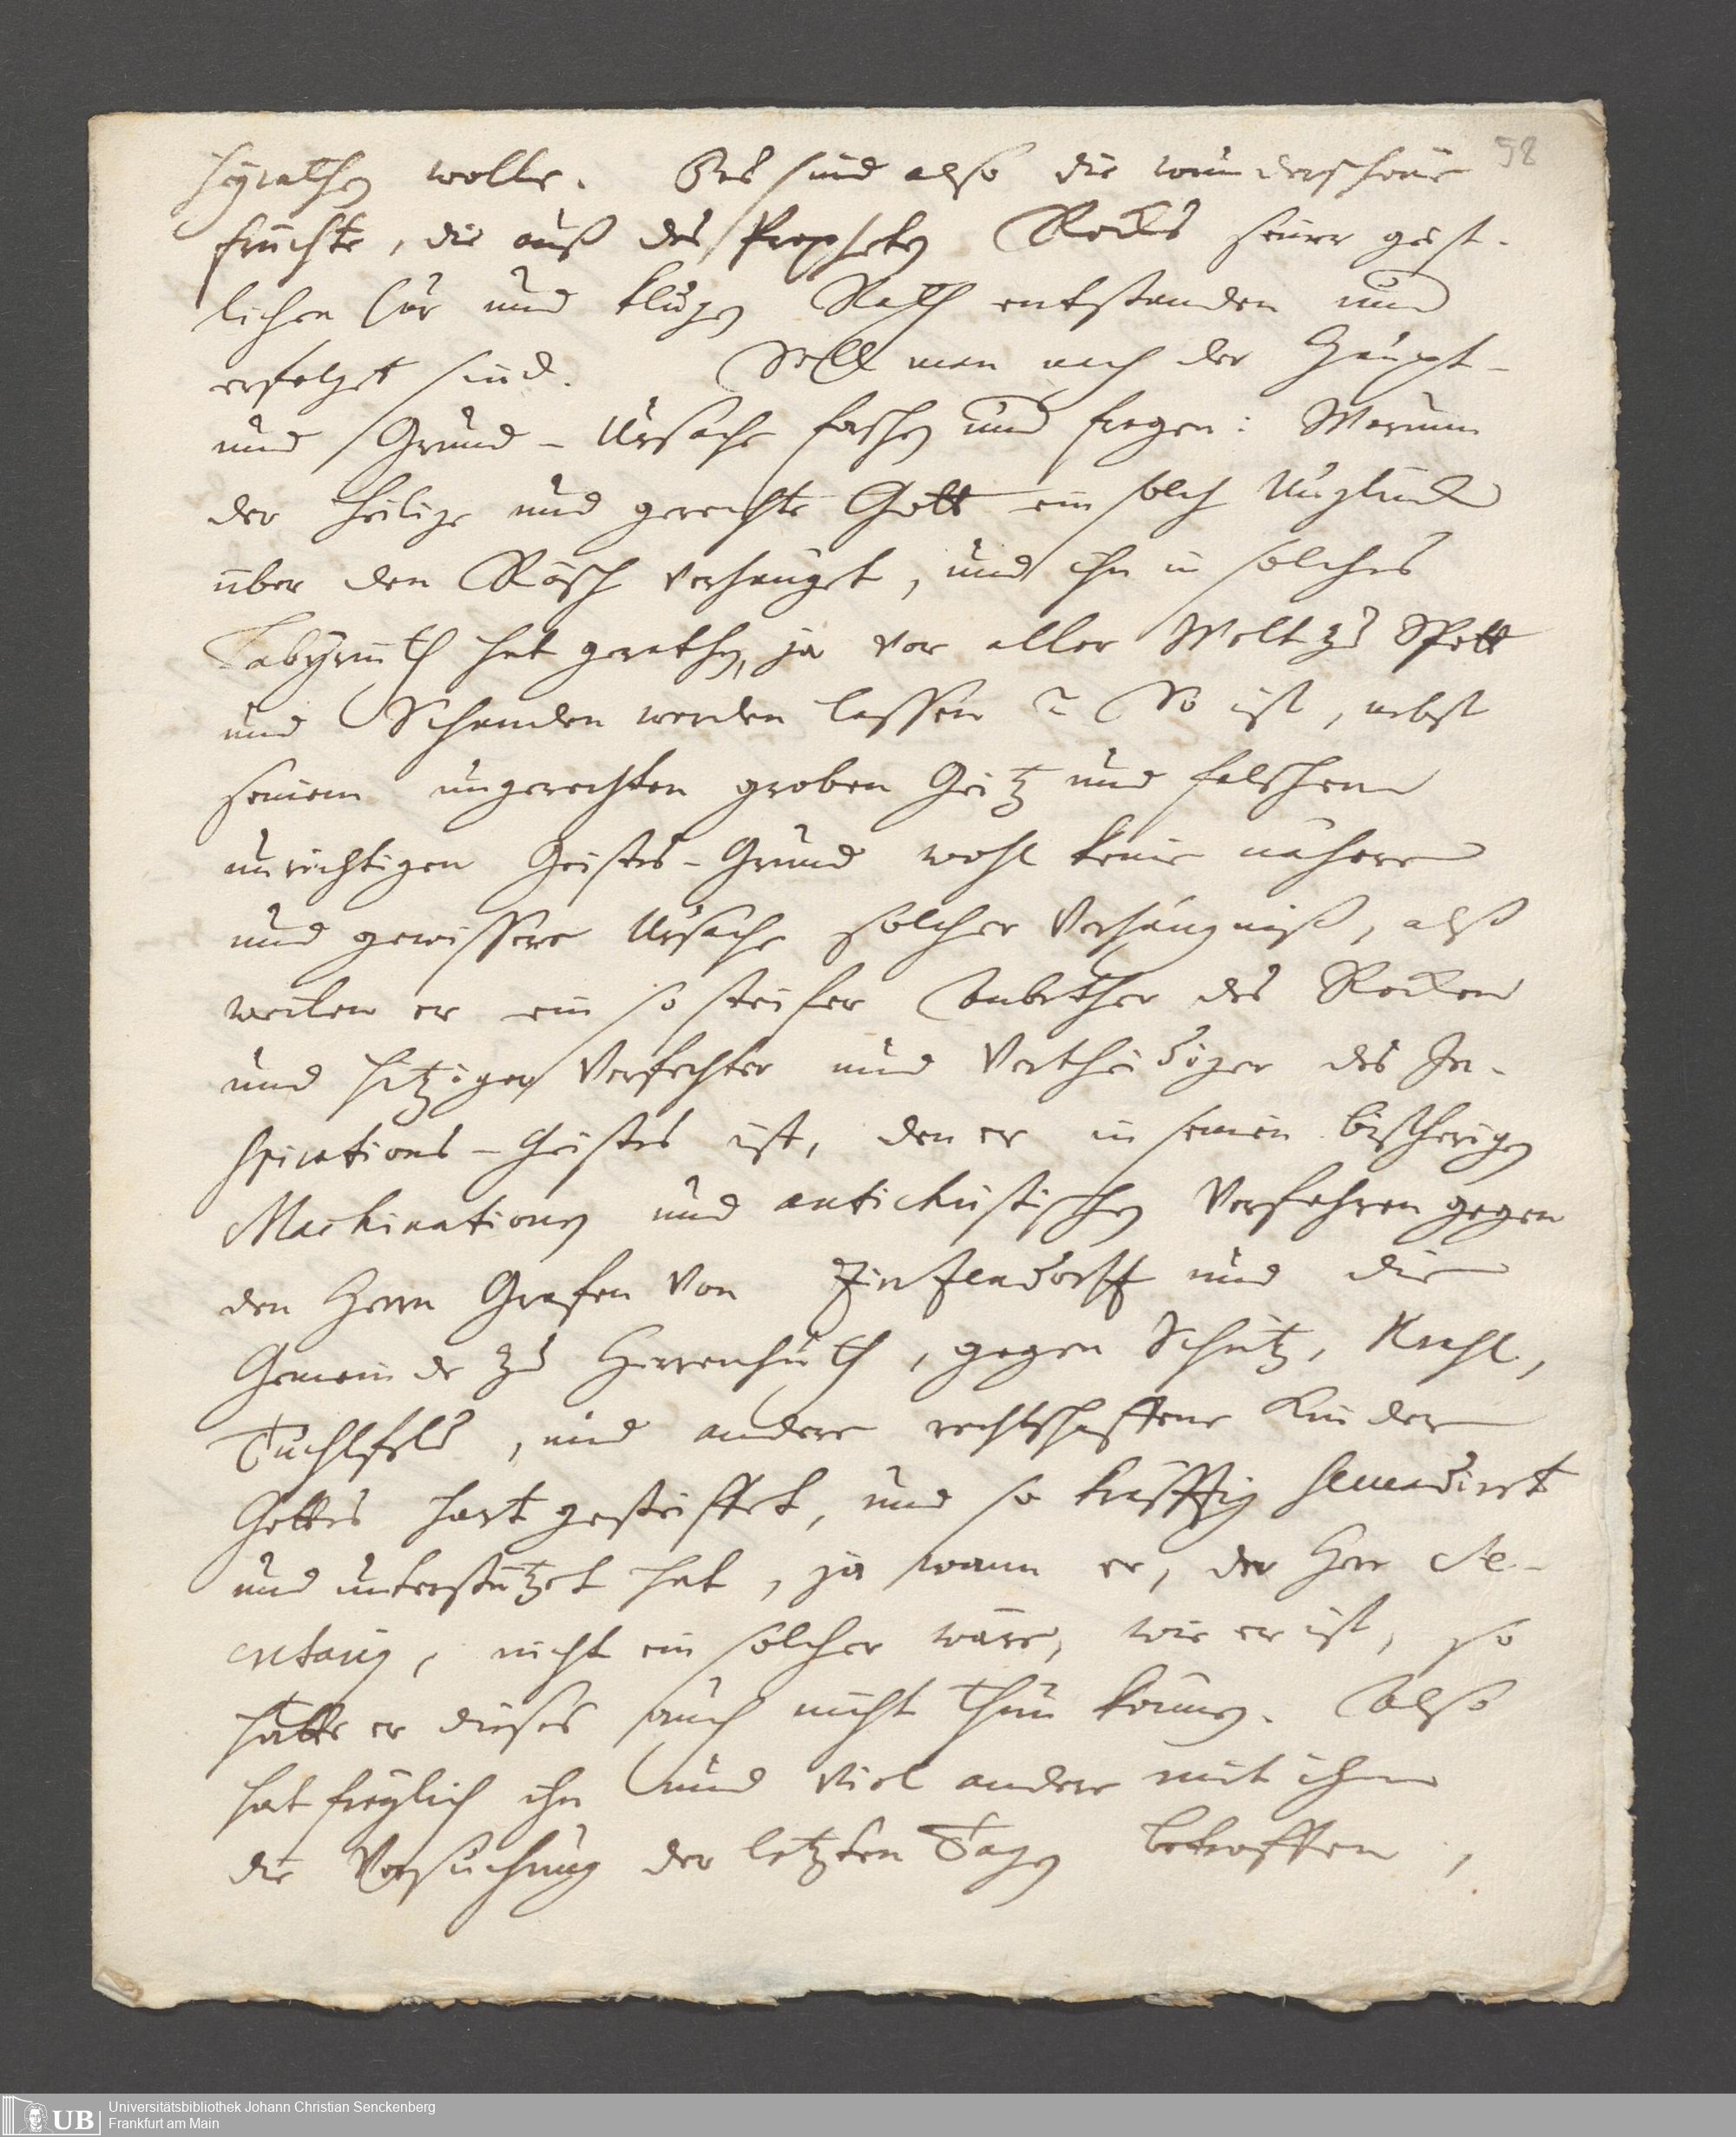 58
heyrathen wolle. Das sind also die wunderschöne
früchte, die auß des Propheten Rocks seiner geist-
lichen Cur und klugen Rath entstanden und
erfolget sind. Soll man nach der Haupt-
und Grund-Ursache forschen und fragen: Warum
der heilige und gerechte Gott ein solch Unglück
über den Rösch verhänget, und ihn in solches
Labyrinth hat gerathen, ja vor aller Welt zu Spott
und Schanden werden lassen? So ist, nebst
seinem ungerechten groben Geitz und falschem
unrichtigen Geistes-Grund wohl keine nähere
und gewissere Ursache solcher Verhängniß, alß
weilen er ein so steifer Anbether des Rocken
und hitziger Verfechter und Vertheidiger des In-
spirations-Geistes ist, den er in seinen bißherigen
Machinationen und antichristischen Verfahren gegen
den Herrn Grafen von Zinzendorff und die
Gemeinde zu Herrenhuth, gegen Schütz,
Tuchtfeld, und andere rechtschaffene Kinder
Gottes hart gesteiffet, und so kräfftig secundiret
und unterstützet hat, ja wann er, der Herr
nicht ein solcher wäre, wie er ist, so
hätte er dieses auch nicht thun können. Also
hat freylich ihn und viel andere mit ihm
die Versuchung der letzten Tagen betroffen,
UB
Universitätsbibliothek Johann Christian Senckenberg
Frankfurt am Main